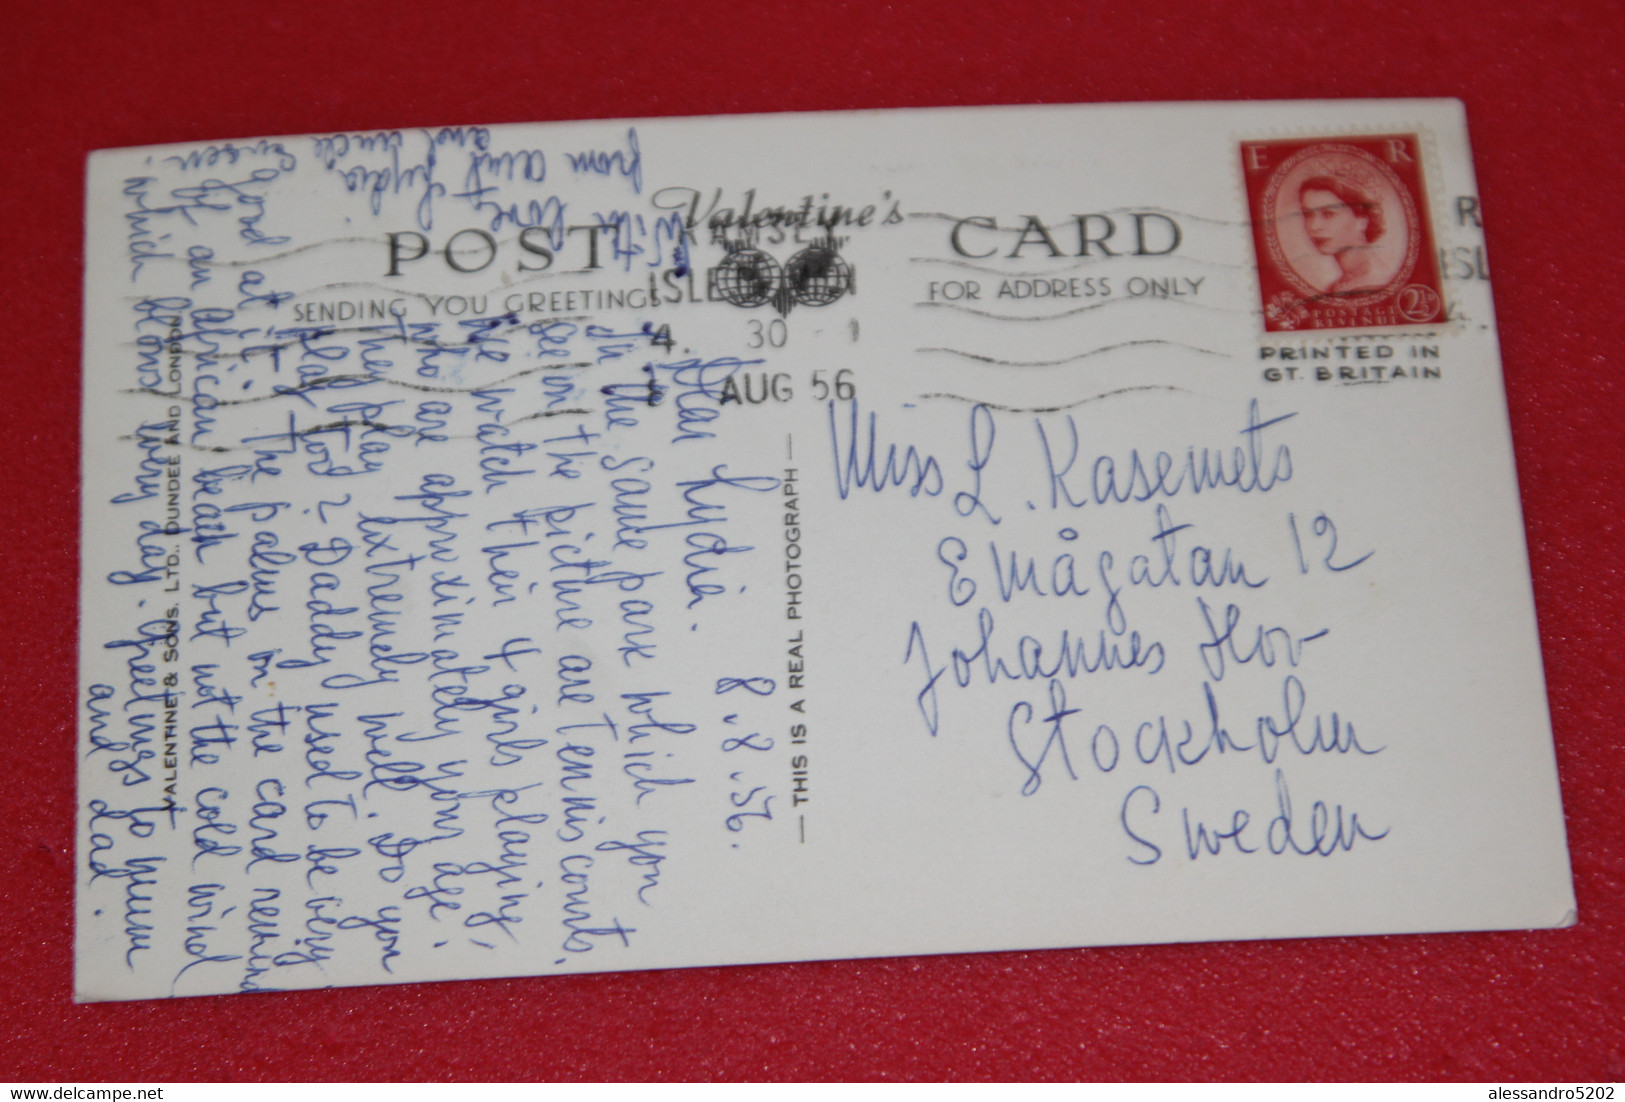 Valentine's
POST CARD
SENDING YOU GREETINGS
FOR ADDRESS ONLY
RAMSEY
ISLE MAN
4. 30
8 AUG 56
R
ISL
4.
E R
POSTAGE
REVENUE
2½
PRINTED IN
GT. BRITAIN
THIS IS A REAL PHOTOGRAPH
VALENTINE & SONS. LTD., DUNDEE AND LONDON
8.8.56.
Dear Lydia.
In the same park which you
see on the picture are tennis courts.
We watch their 4 girls playing,
who are approximately your age.
They play extremely well. Do you
play too? Daddy used to be very
good at it. The palms on the card remind
of an african beach but not the cold wind
which blows every day. Greetings to mum
and dad.
With love,
from aunt Lydia
and uncle
Miss L. Kasemets
Emågatan 12
Johannes Hov
Stockholm
Sweden
alessandro5202